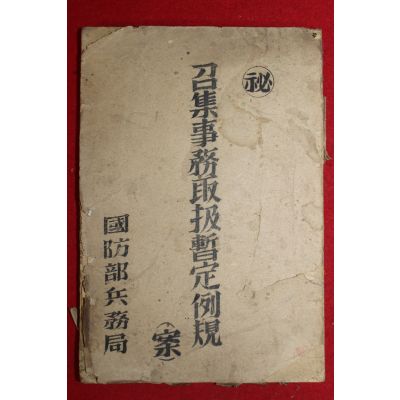 ㊙
召集事務取扱暫定例規
(案)
國防部兵務局